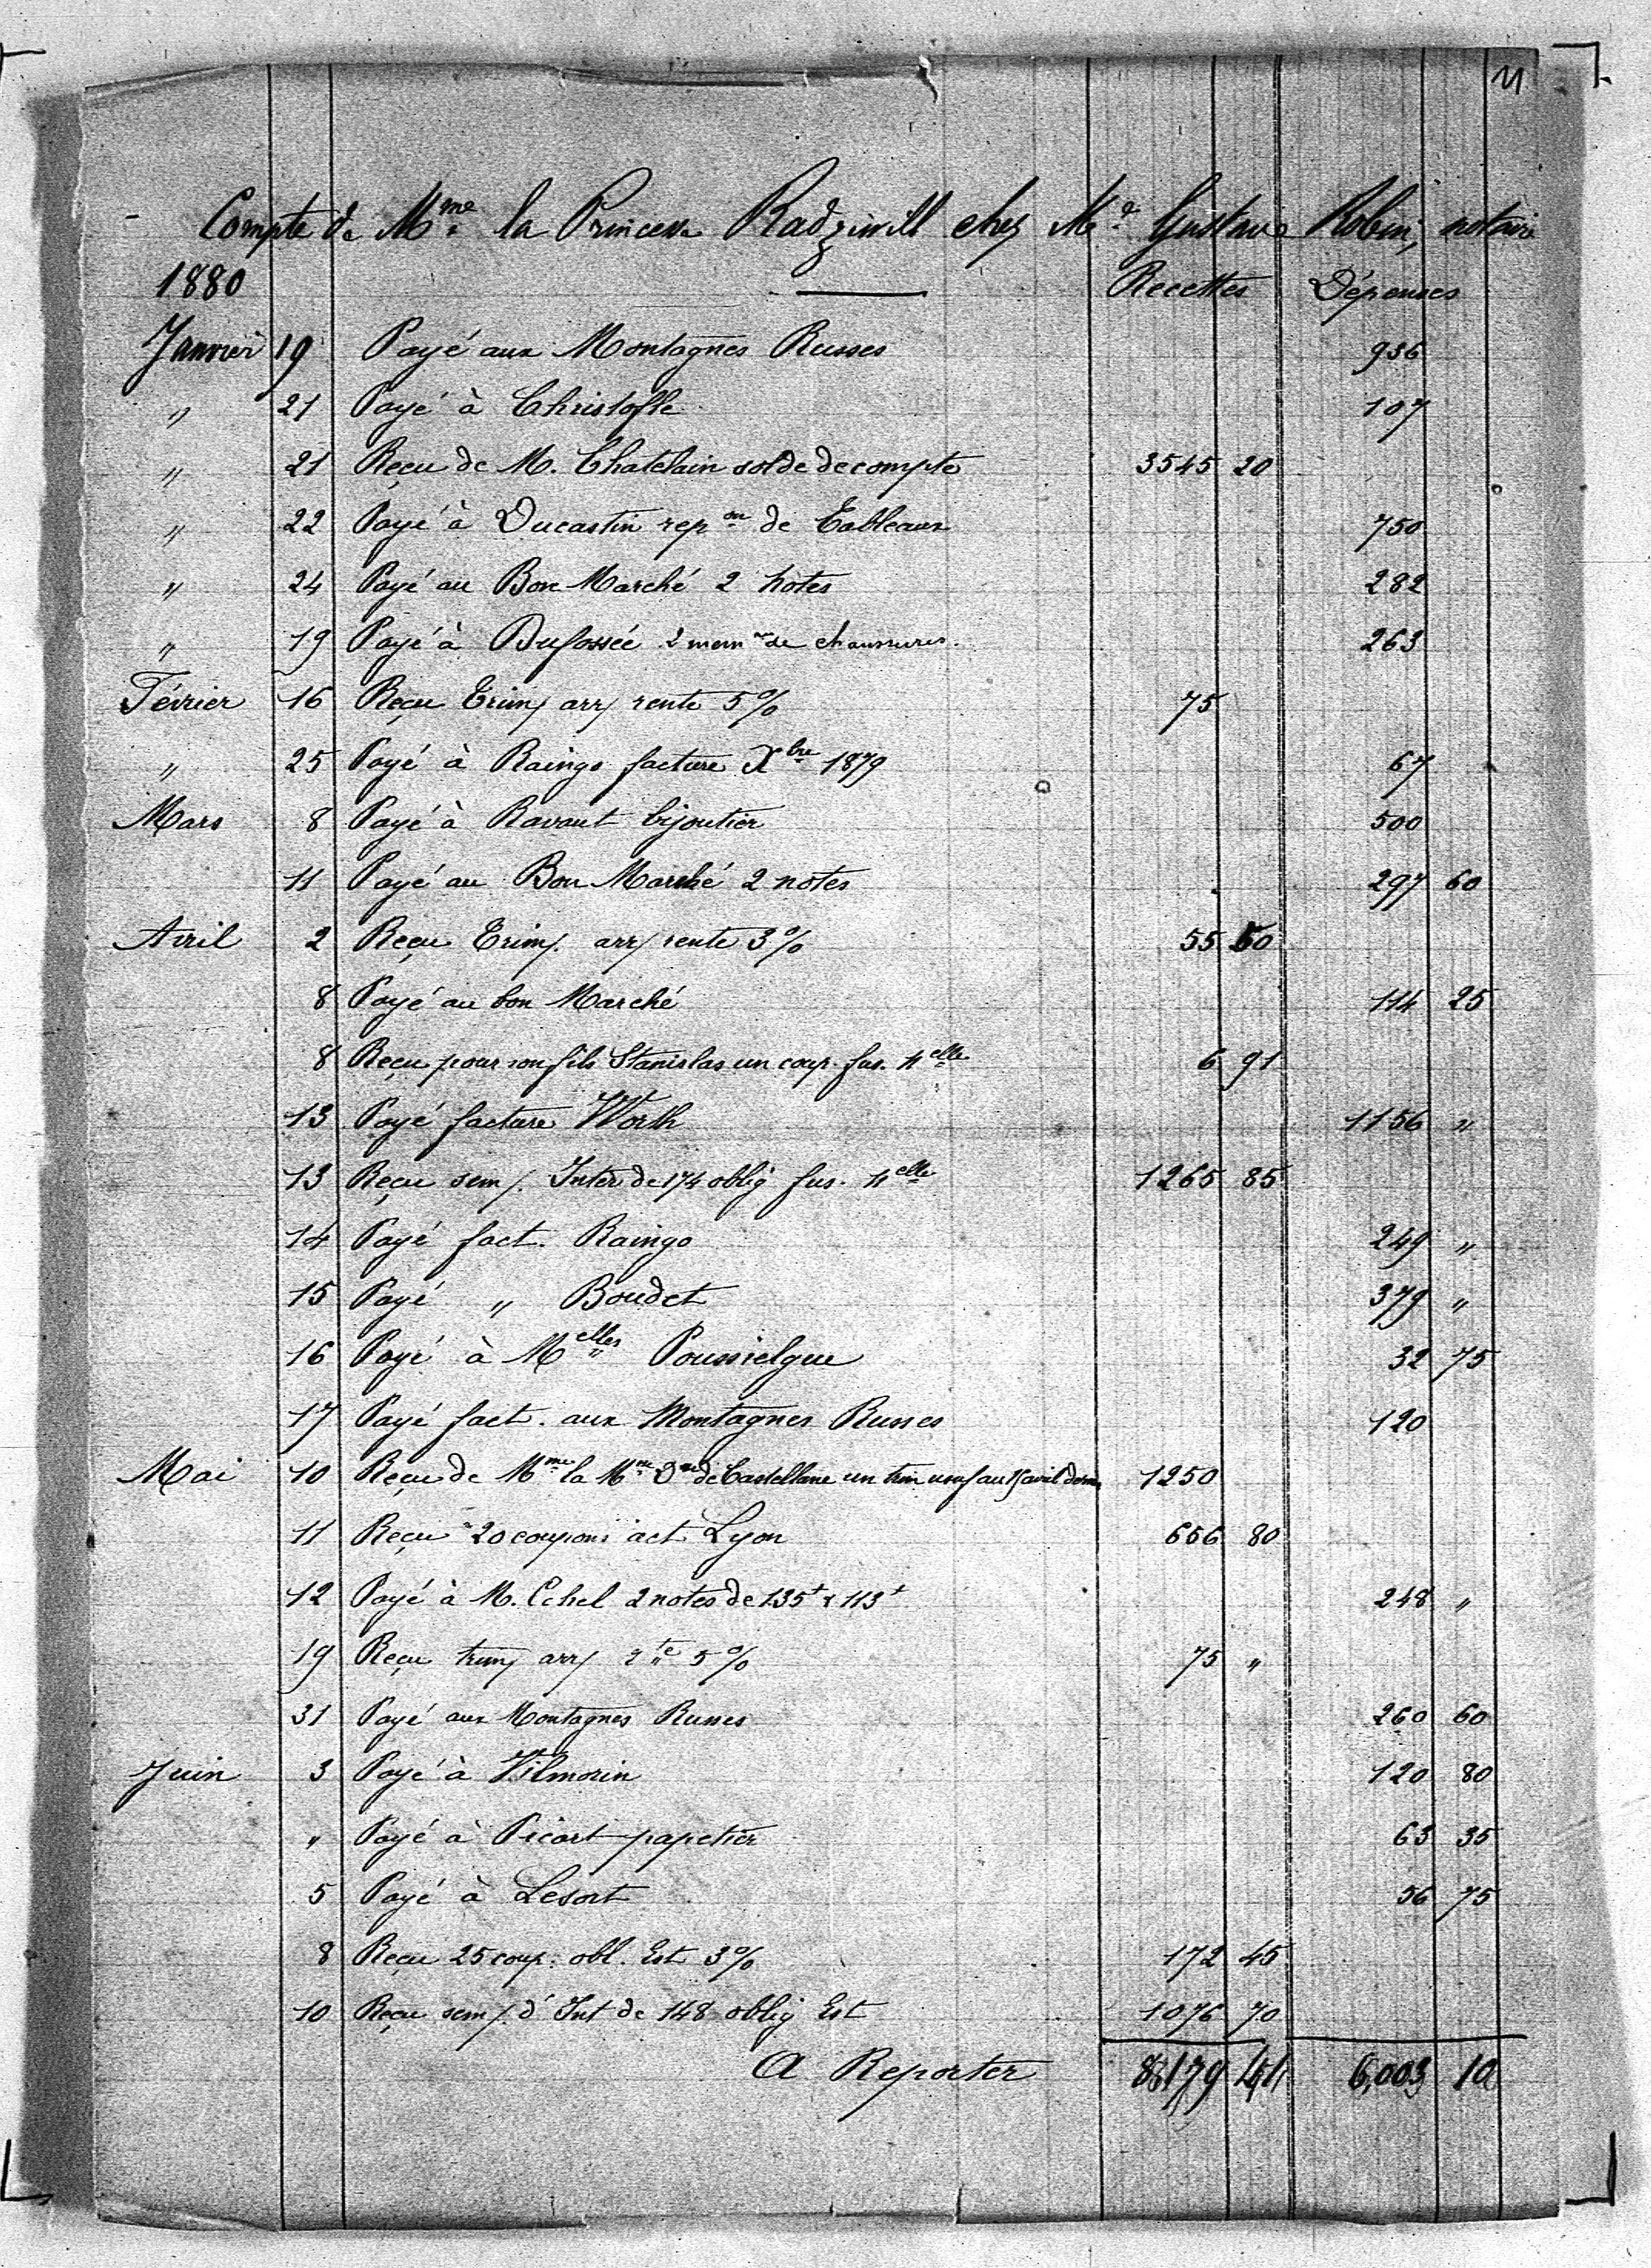 11
Compte de Mme la Princesse Radziwill chez Me Gustave Robin, notaire
1880 Recettes Dépenses
Janvier 19 Payé aux Montagnes Russes 936
" 21 Payé à Christofle 107
" 21 Reçu de M. Chatelain solde de compte 3545 20
" 22 Payé à Ducastin repon de Tableaux 750
" 24 Payé au Bon Marché 2 notes 282
" 19 Payé à Dufossée 2 memres de chaussures. 263
Février 16 Reçu Trim/ arr/ rente 5% 75
" 25 Payé à Raingo facture Xbre 1879 67
Mars 8 Payé à Ravaut bijoutier 500
11 Payé au Bon Marché 2 notes 297 60
Avril 2 Reçu Trim/. arr/ rente 3% 55 50
8 Payé au bon Marché 114 25
8 Reçu pour son fils Stanislas un coup. fus. nelle 6 91
13 Payé facture Worth 1156 "
13 Reçu sem/. Inter de 174 oblig fus. nelle 1265 85
14 Payé fact. Raingo 249 "
15 Payé " Boudet 379 "
16 Payé à Melles Poussielgue 32 75
17 Payé fact. aux Montagnes Russes 120
Mai 10 Reçu de Mme la Mse Dre de Castellane un trim au 15 avril dern. 1250
11 Reçu 20 coupons act Lyon 656 80
12 Payé à M. Echel 2 notes de 135f & 113f 248 "
19 Reçu trim/ arr/ rte 5% 75 "
31 Payé aux Montagnes Russes 260 60
Juin 3 Payé à Vilmorin 120 80
" Payé à Picart papetier 63 35
5 Payé à Lesort 56 75
8 Reçu 25 coup. obl. Est 3% 172 45
10 Reçu sem/. d'Int de 148 oblig Est 1076 70
A Reporter 8,179 41 6,003 10